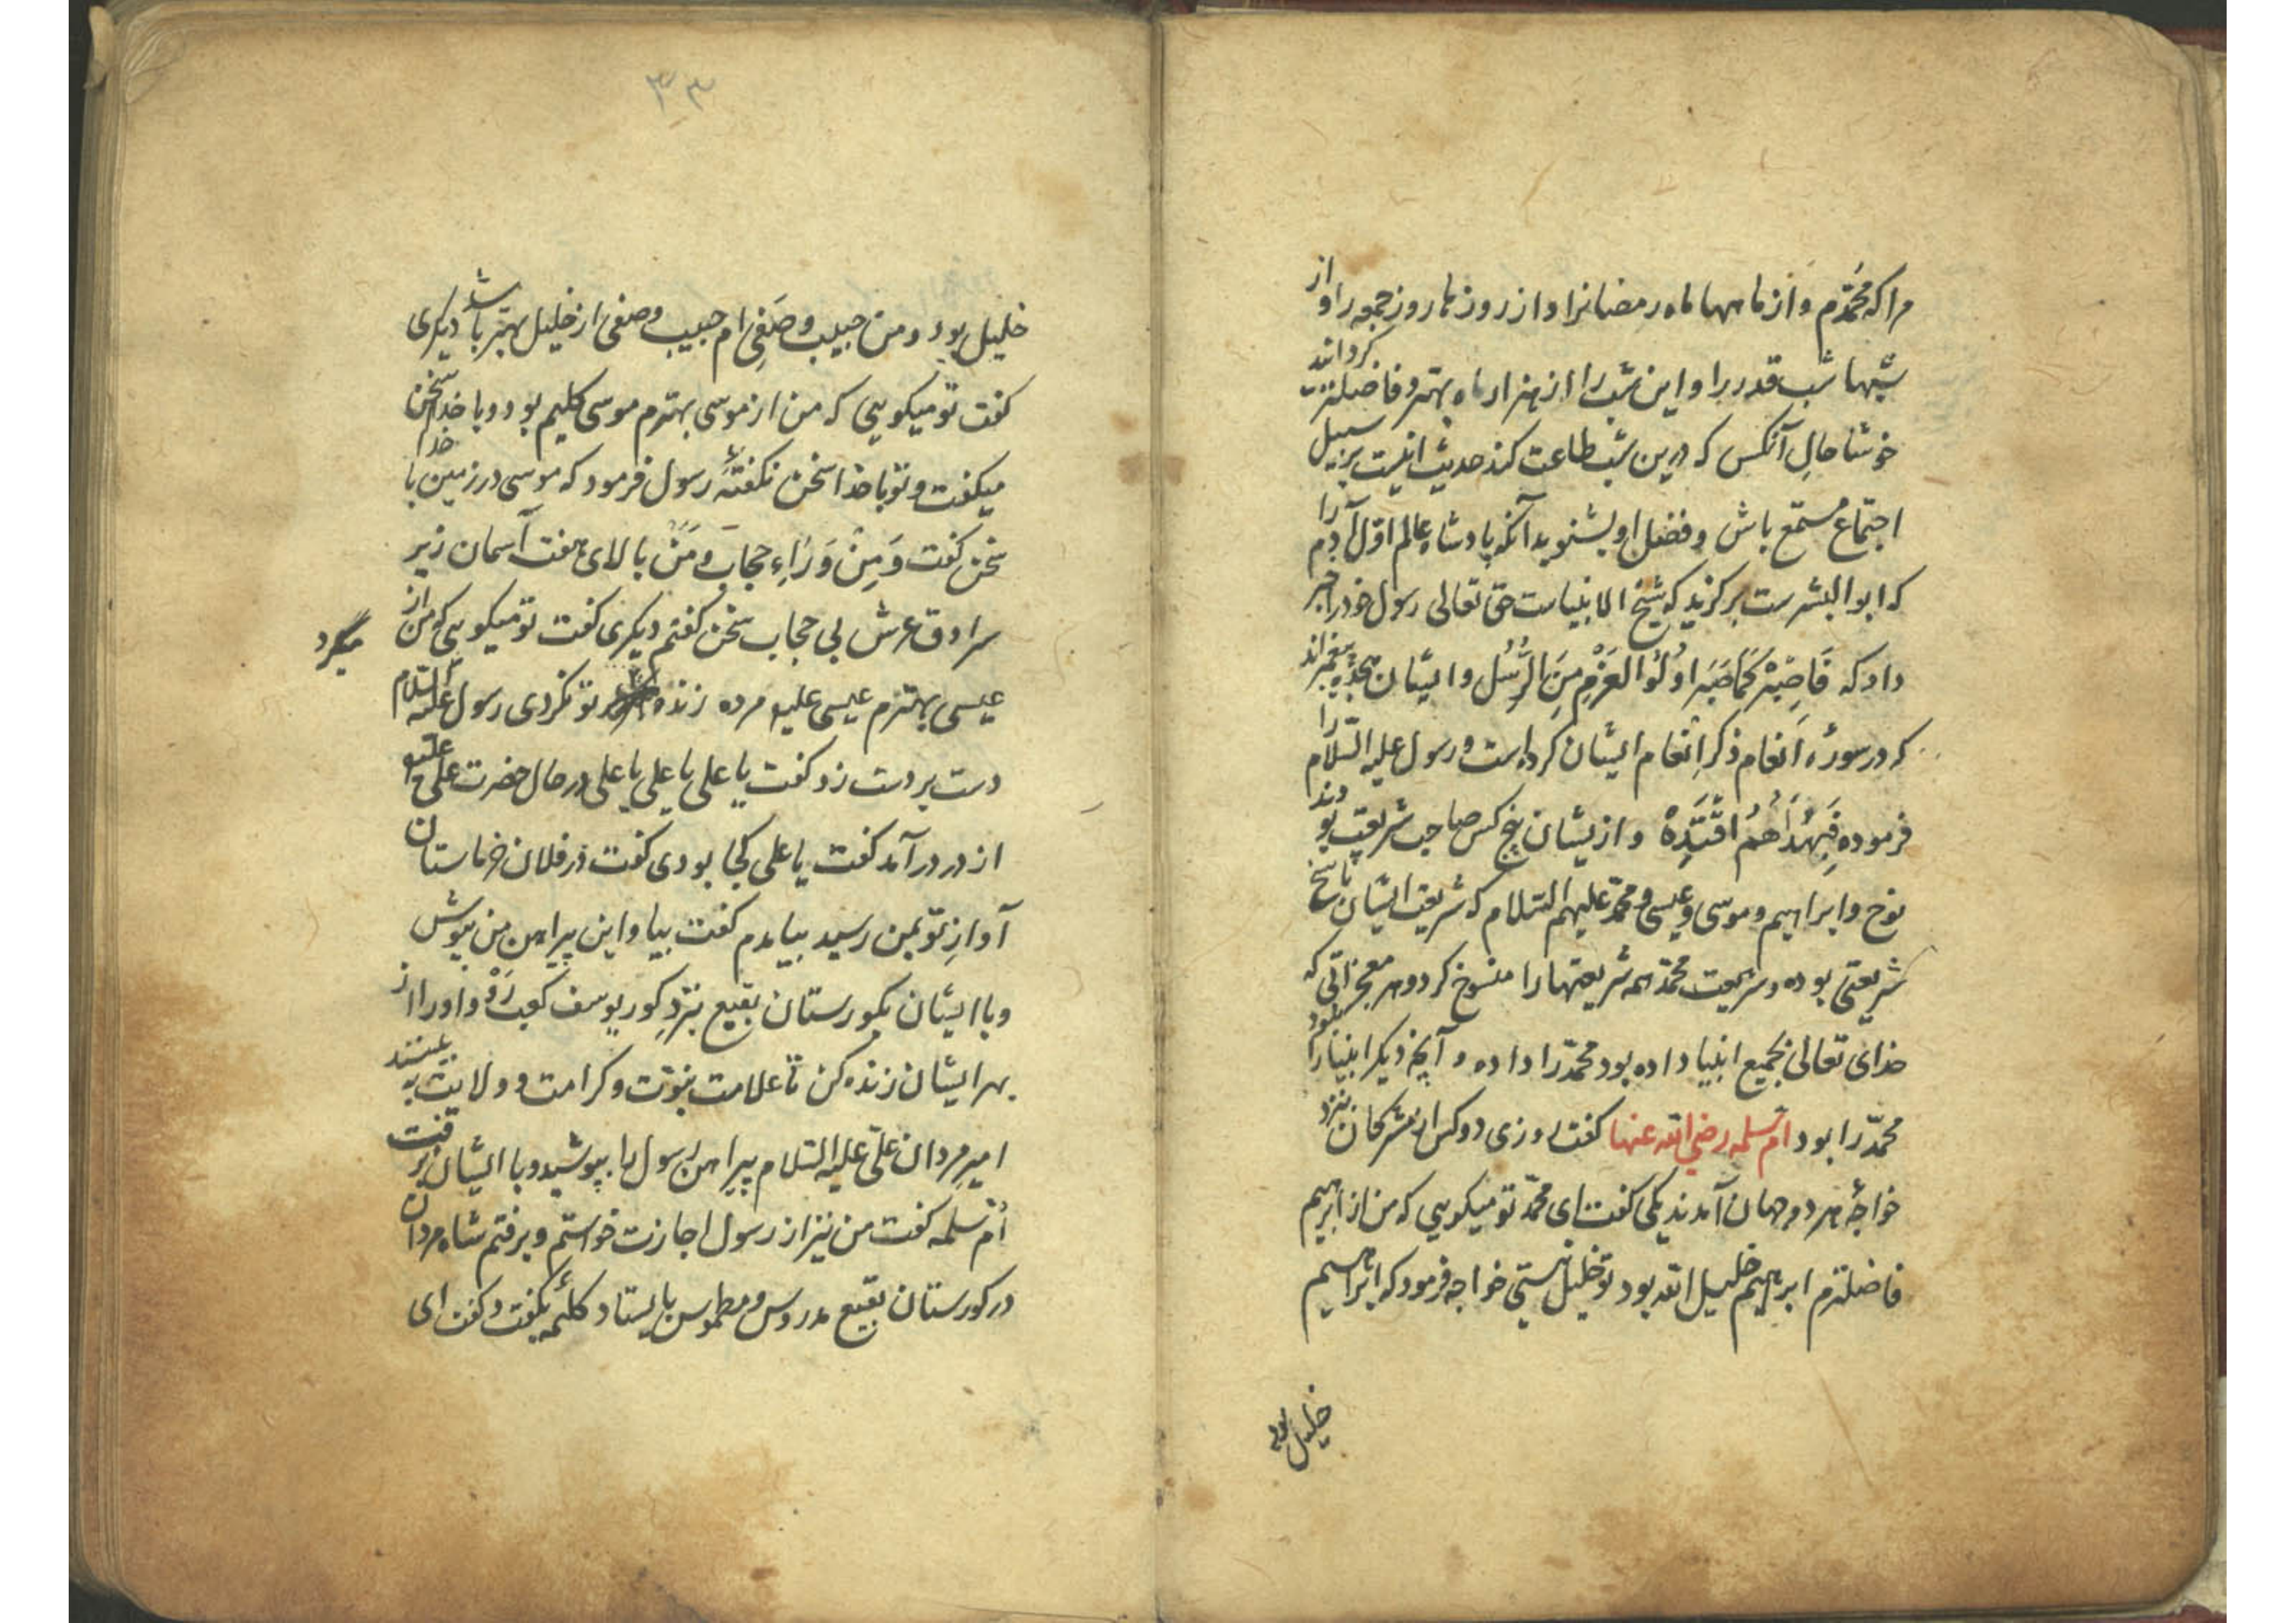 مرا که محمّدم و از ماهها ماه رمضانرا و از روزها روز جمعه را و از
شبها شب قدر را و این شب را از هزار ماه بهتر و فاضلتر کردانید
خوشا حالِ آنکس که درین شب طاعت کند حدیث اینست بر سبیل
اجتماع مستمع باش و فضل او بشنوید آنکه پادشاه عالم اوّل آدم را
که ابو البشرست برکزید که شیخ الانبیاست حق تعالی رسول خود را خبر
داد که فَاصْبِرْ کَمَا صَبَرَ اُولُوا العَزْمِ مِنَ الرُّسُل و ایشان هجده پیغمبراند
که در سورهٔ اَنعام ذکر اِنعام ایشان کرده است و رسول علیه السّلام را
فرموده فَبِهُدَاهُمُ اقْتَدِهْ و ازیشان پنج کس صاحب شریعت بودند
نوح و ابراهیم و موسی و عیسی و محمّد علیهم السّلام که شریعت ایشان ناسخ
شریعتی بوده و شریعت محمّد همه شریعتها را منسوخ کرد و هر معجزاتی که
خدای تعالی بجمیع انبیا داده بود محمّد را داده و آنچه دیکر انبیا را نبود
محمّد را بود امّ سلمه رضی الله عنها کفت روزی دو کس از مشرکان نزد
خواجهٔ هر دو جهان آمدند یکی کفت ای محمّد تو میکویی که من از ابرهیم
فاضلترم ابرهیم خلیل الله بود تو خلیل نیستی خواجه فرمود که ابراهیم
خلیل بود
۳۳
خلیل بود و من حبیب و صَفِی ام حبیب و صفی از خلیل بهتر باشد دیکری
کفت تو میکویی که من از موسی بهترم موسی کلیم بود و با خدا سخن
میکفت و تو با خدا سخن نکفتهٔ رسول فرمود که موسی در زمین با خدا
سخن کفت وَ مِنْ وَرَاءِ حجاب و مَنْ بالای هفت آسمان زیر
سرادق عرش بی حجاب سخن کفتم دیکری کفت تو میکویی که من از
عیسی بهترم عیسی علیه مرده زنده میکرد تو نکردی رسول علیه السّلام
دست بر دست زد کفت یا علی یا علی یا علی در حال حضرت علی علیه
از در درآمد کفت یا علی کجا بودی کفت در فلان خرماستان
آوازِ تو بمن رسید بیامدم کفت بیا و این پیراهن من بپوش
و با ایشان بکورستان بقیع بنزدِ کور یوسف کعب رَوْ و او را از
بهر ایشان زنده کن تا علامت نبوّت و کرامت و ولایت ببینند
امیر مردان علی علیه السّلام پیراهن رسول را بپوشید و با ایشان برفت
اُمّ سلمه کفت من نیز از رسول اجازت خواستم و برفتم شاه مردان
در کورستان بقیع مدروس و مطموس بایستاد کلمهٔ بکفت و کفت ای